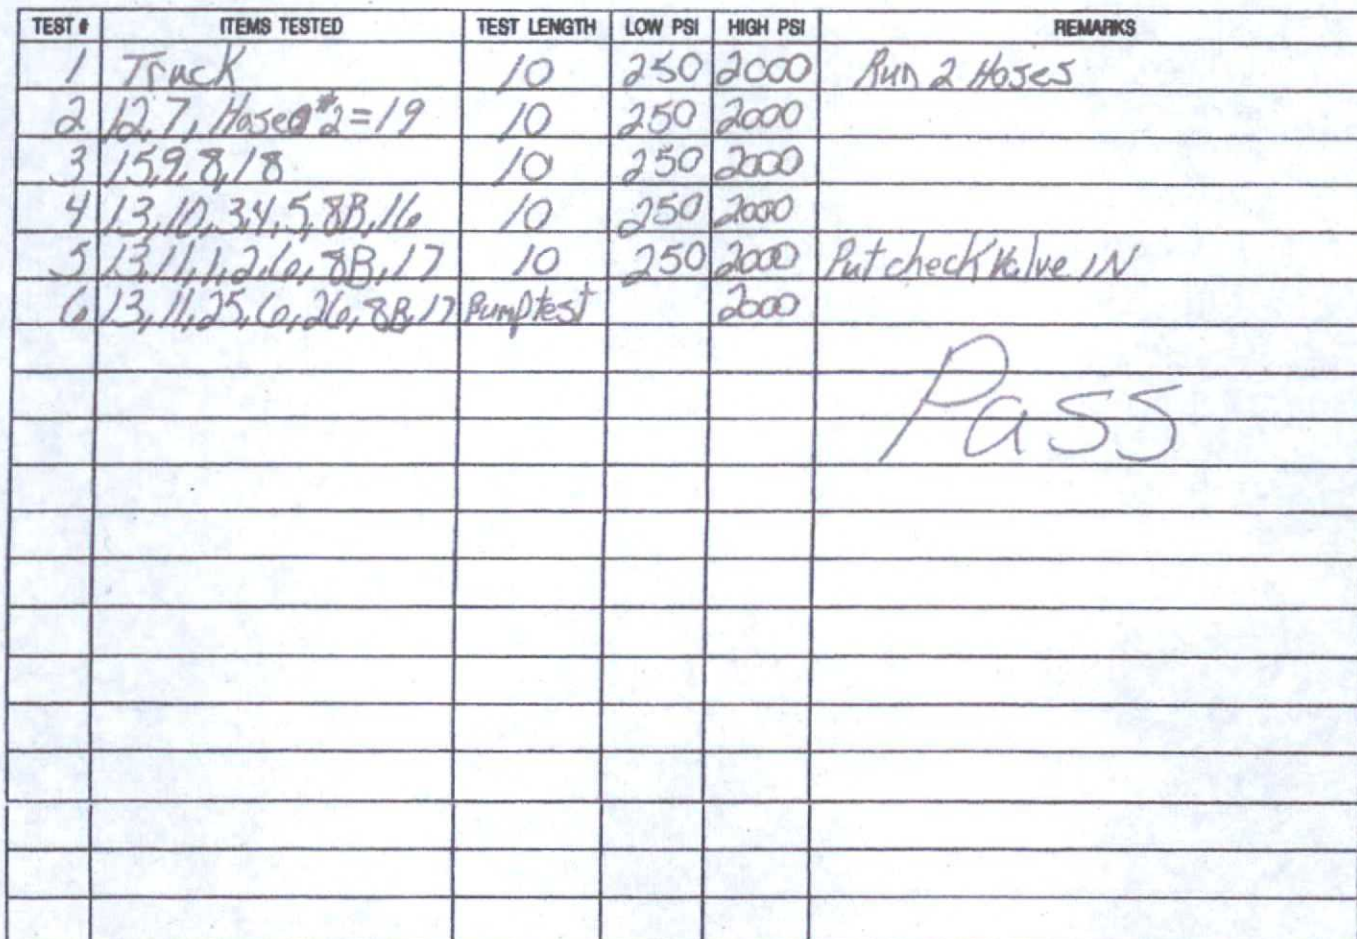 TEST # ITEMS TESTED TEST LENGTH LOW PSI HIGH PSI REMARKS
1 Truck 10 250 2000 Run 2 Hoses
2 12,7, Hose #2=19 10 250 2000
3 15,9,8,18 10 250 2000
4 13,10,3,4,5,8B,16 10 250 2000
5 13,11,1,2,6,8B,17 10 250 2000 Put check Valve IN
6 13,11,25,6,26,8B,17 Pump test 2000
Pass